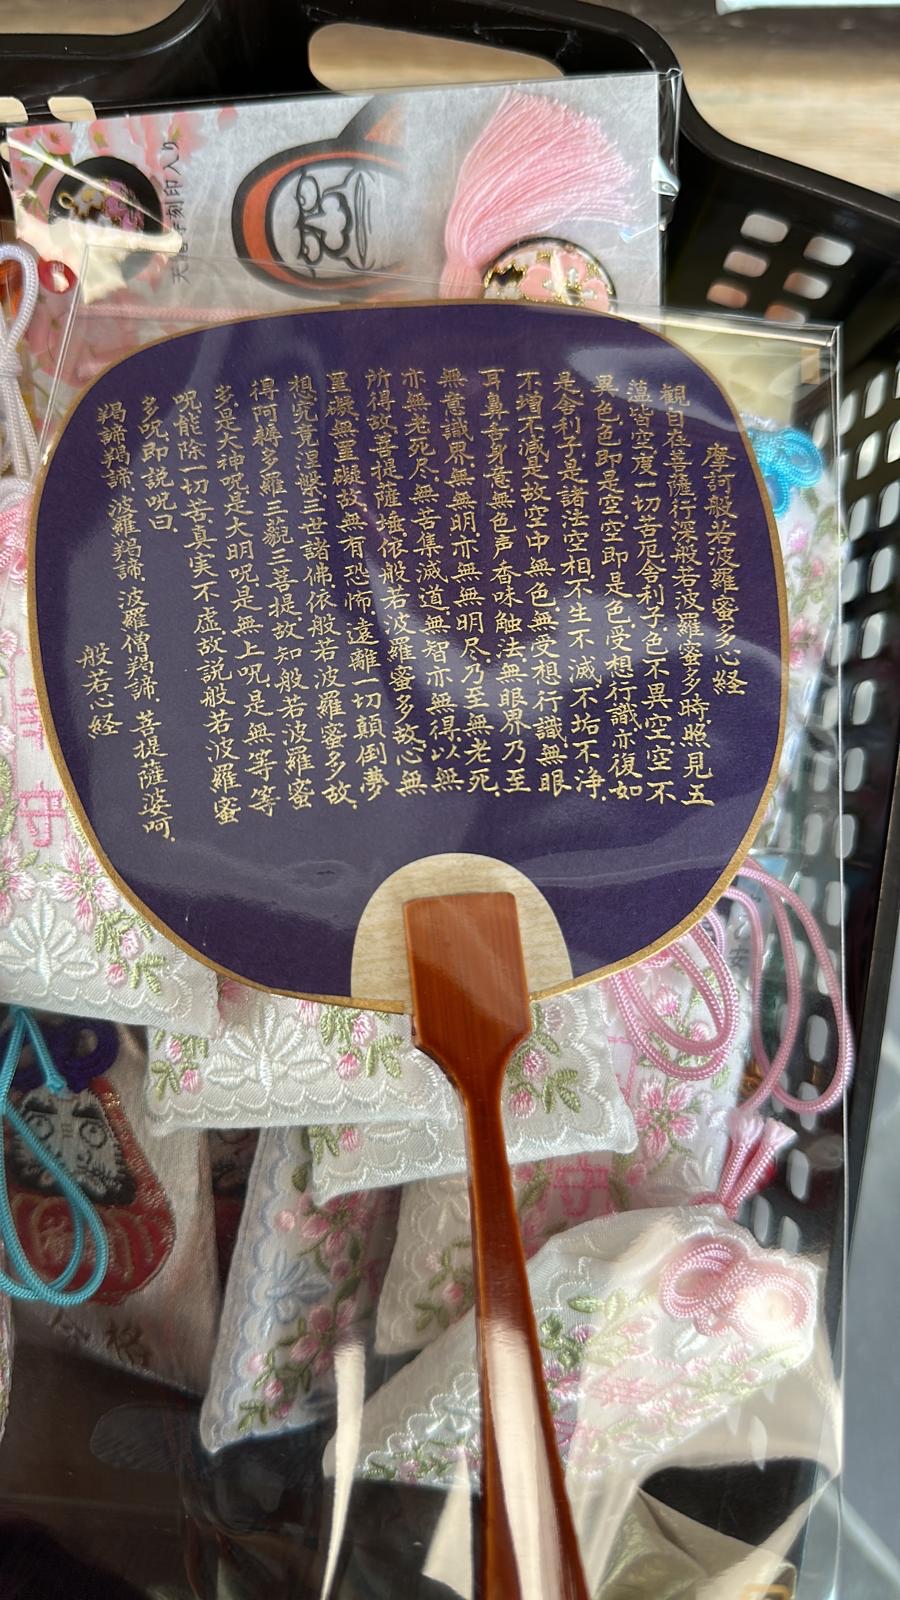 摩訶般若波羅蜜多心経
観自在菩薩行深般若波羅蜜多時照見五
蘊皆空度一切苦厄舎利子色不異空空不
異色色即是空空即是色受想行識亦復如
是舎利子是諸法空相不生不滅不垢不浄
不増不減是故空中無色無受想行識無眼
耳鼻舌身意無色声香味触法無眼界乃至
無意識界無無明亦無無明尽乃至無老死
亦無老死尽無苦集滅道無智亦無得以無
所得故菩提薩埵依般若波羅蜜多故心無
罣礙無罣礙故無有恐怖遠離一切顛倒夢
想究竟涅槃三世諸佛依般若波羅蜜多故
得阿耨多羅三藐三菩提故知般若波羅蜜
多是大神呪是大明呪是無上呪是無等等
呪能除一切苦真実不虚故説般若波羅蜜
多呪即説呪曰
羯諦羯諦波羅羯諦波羅僧羯諦菩提薩婆呵
般若心経
刻印入り
守
守
格